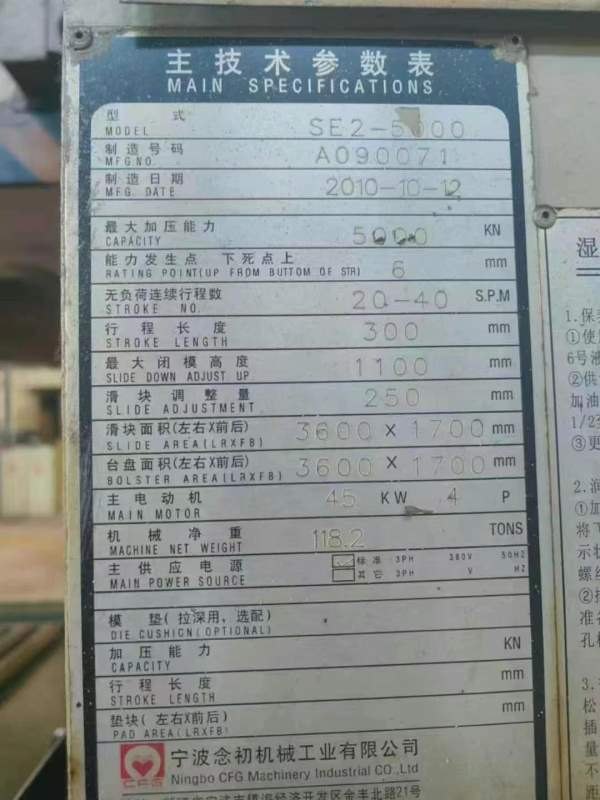 主技术参数表
MAIN SPECIFICATIONS
型 式
MODEL SE2-5000
制造号码
MFG.NO. A090071
制造日期
MFG. DATE 2010-10-12
最大加压能力
CAPACITY 5000 KN
能力发生点 下死点上
RATING POINT(UP FROM BUTTOM OF STR) 6 mm
无负荷连续行程数
STROKE NO. 20-40 S.P.M
行程长度
STROKE LENGTH 300 mm
最大闭模高度
SLIDE DOWN ADJUST UP 1100 mm
滑块调整量
SLIDE ADJUSTMENT 250 mm
滑块面积(左右X前后)
SLIDE AREA(LRXFB) 3600 X 1700 mm
台盘面积(左右X前后)
BOLSTER AREA(LRXFB) 3600 X 1700 mm
主电动机
MAIN MOTOR 45 KW 4 P
机械净重
MACHINE NET WEIGHT 118.2 TONS
主供应电源 标准 3PH 380V 50HZ
MAIN POWER SOURCE 其它 3PH V HZ
模 垫(拉深用,选配)
DIE CUSHION(OPTIONAL)
加压能力
CAPACITY KN
行程长度
STROKE LENGTH mm
垫块(左右X前后)
PAD AREA(LRXFB) mm
CFG
宁波念初机械工业有限公司
Ningbo CFG Machinery Industrial CO.,Ltd
经济开发区金丰北路21号
湿
1.保
①使
6号液
②供
加油
1/2
③更
2.润
①加
将下
示状
螺丝
②
准备
孔
3.
松
插
量
不
距